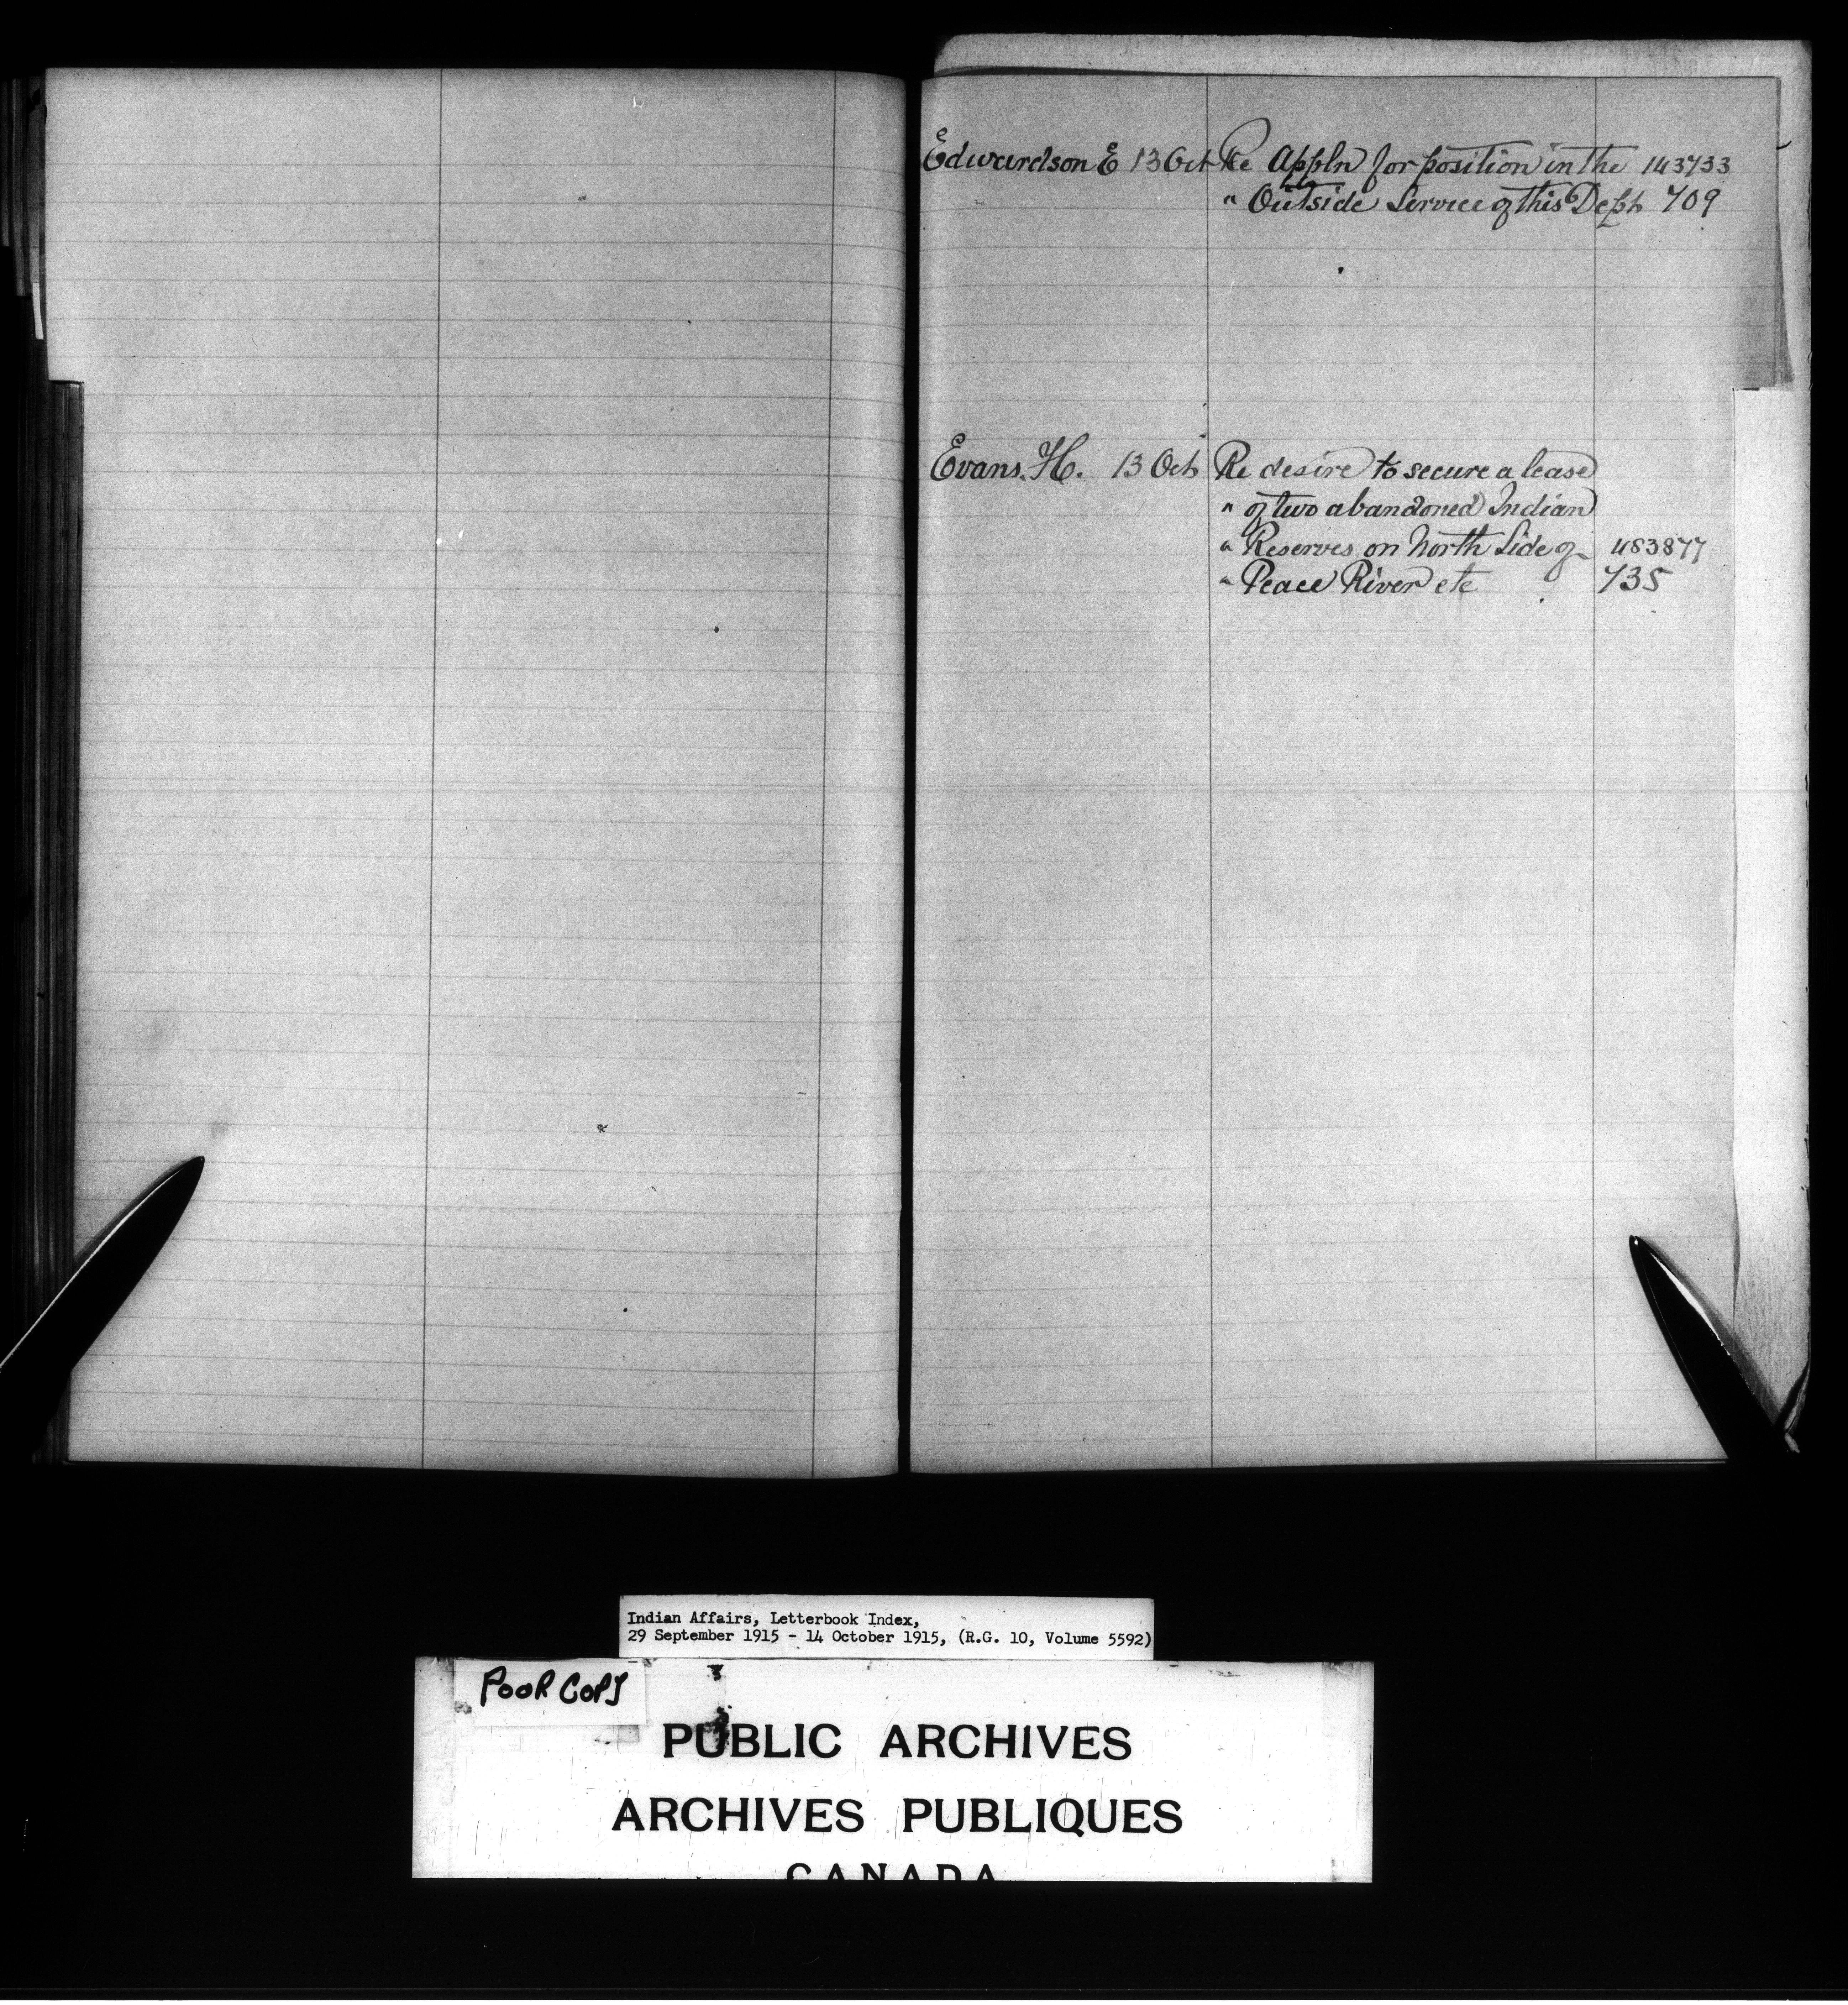 Edwardson E 13 Oct Re Appln for position in the 143733
" Outside Service of this Dept 709
Evans. H. 13 Oct Re desire to secure a lease
" of two abandoned Indian
" Reserves on North Side of 483877
" Peace River etc 735
Indian Affairs, Letterbook Index,
29 September 1915 - 14 October 1915, (R.G. 10, Volume 5592)
POOR COPY
PUBLIC ARCHIVES
ARCHIVES PUBLIQUES
CANADA